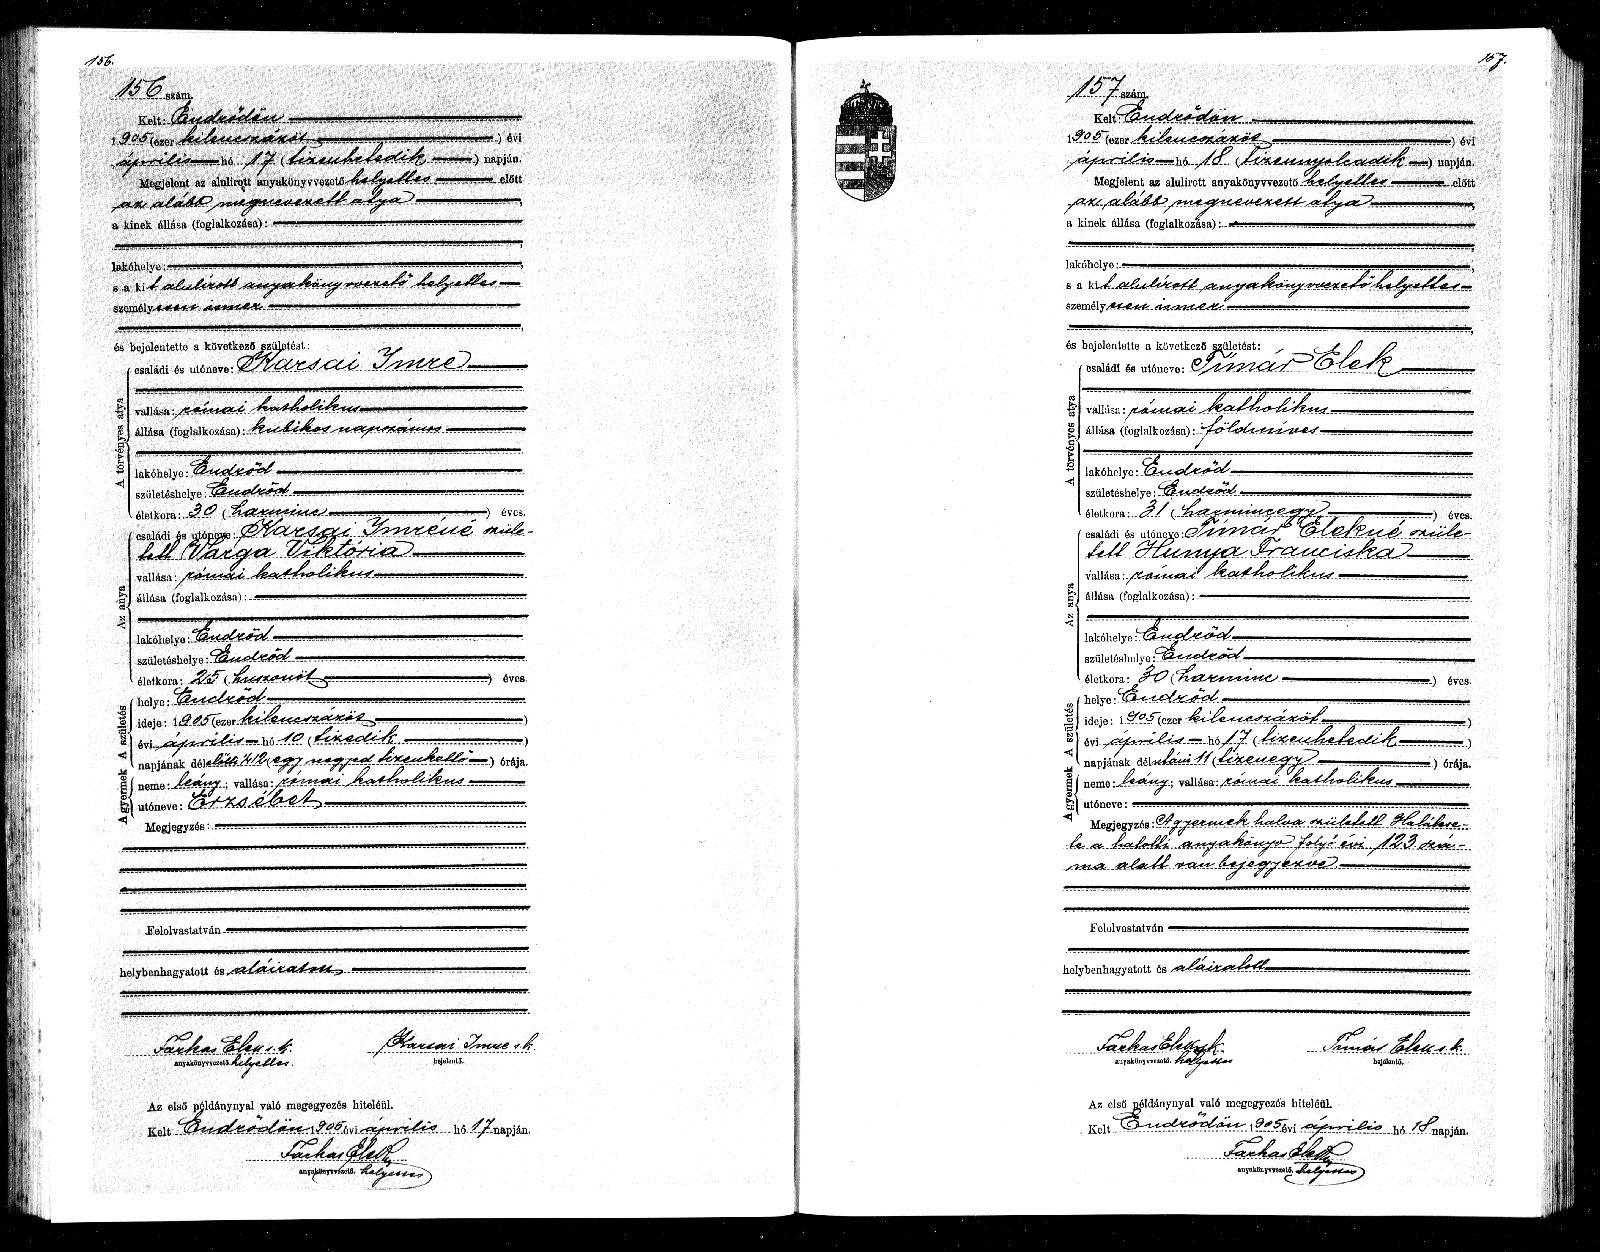 156.
156 szám.
Kelt: Endrődön
1905 (ezer kilencszázöt) évi
április hó 17 (tizenhetedik) napján.
Megjelent az alulirott anyakönyvvezető helyettes előtt
az alább megnevezett atya,
a kinek állása (foglalkozása):
lakóhelye:
s a kit alulírott anyakönyvvezető helyettes
személyesen ismer
és bejelentette a következő születést:
A törvényes atya
családi és utóneve: Karsai Imre
vallása: római katholikus
állása (foglalkozása): kubikos napszámos
lakóhelye: Endrőd
születéshelye: Endrőd
életkora: 30 (harminc) éves.
Az anya
családi és utóneve: Karsai Imréné szüle-
tett Varga Viktória
vallása: római katholikus
állása (foglalkozása):
lakóhelye: Endrőd
születéshelye: Endrőd
életkora: 25 (huszonöt) éves.
A születés
helye: Endrőd
ideje: 1905 (ezer kilencszázöt)
évi április hó 10 (tizedik)
napjának délelőtti ¼12 (egy negyed tizenkettő) órája.
A gyermek
neme: leány; vallása: római katholikus
utóneve: Erzsébet
Megjegyzés:
Felolvastatván
helybenhagyatott és aláiratott
Farkas Elek s. k. Karsai Imre s. k.
anyakönyvvezető. helyettes bejelentő.
Az első példánynyal való megegyezés hiteléül.
Kelt Endrődön 1905 évi április hó 17 napján.
Farkas Elek
anyakönyvvezető. helyettes
157.
157 szám.
Kelt: Endrődön
1905 (ezer kilencszázöt) évi
április hó 18 (tizennyolcadik) napján.
Megjelent az alulirott anyakönyvvezető helyettes előtt
az alább megnevezett atya,
a kinek állása (foglalkozása):
lakóhelye:
s a kit alulírott anyakönyvvezető helyettes
személyesen ismer
és bejelentette a következő születést:
A törvényes atya
családi és utóneve: Tímár Elek
vallása: római katholikus
állása (foglalkozása): földmíves
lakóhelye: Endrőd
születéshelye: Endrőd
életkora: 31 (harmincegy) éves.
Az anya
családi és utóneve: Tímár Elekné szüle-
tett Hunya Franciska
vallása: római katholikus
állása (foglalkozása):
lakóhelye: Endrőd
születéshelye: Endrőd
életkora: 30 (harminc) éves.
A születés
helye: Endrőd
ideje: 1905 (ezer kilencszázöt)
évi április hó 17 (tizenhetedik)
napjának délutáni 11 (tizenegy) órája.
A gyermek
neme: leány; vallása: római katholikus
utóneve:
Megjegyzés: A gyermek halva született. Halálese-
te a halotti anyakönyv folyó évi 123 szá-
ma alatt van bejegyezve
Felolvastatván
helybenhagyatott és aláiratott
Farkas Elek s. k. Tímár Elek s. k.
anyakönyvvezető. helyettes bejelentő.
Az első példánynyal való megegyezés hiteléül.
Kelt Endrődön 1905 évi április hó 18 napján.
Farkas Elek
anyakönyvvezető. helyettes